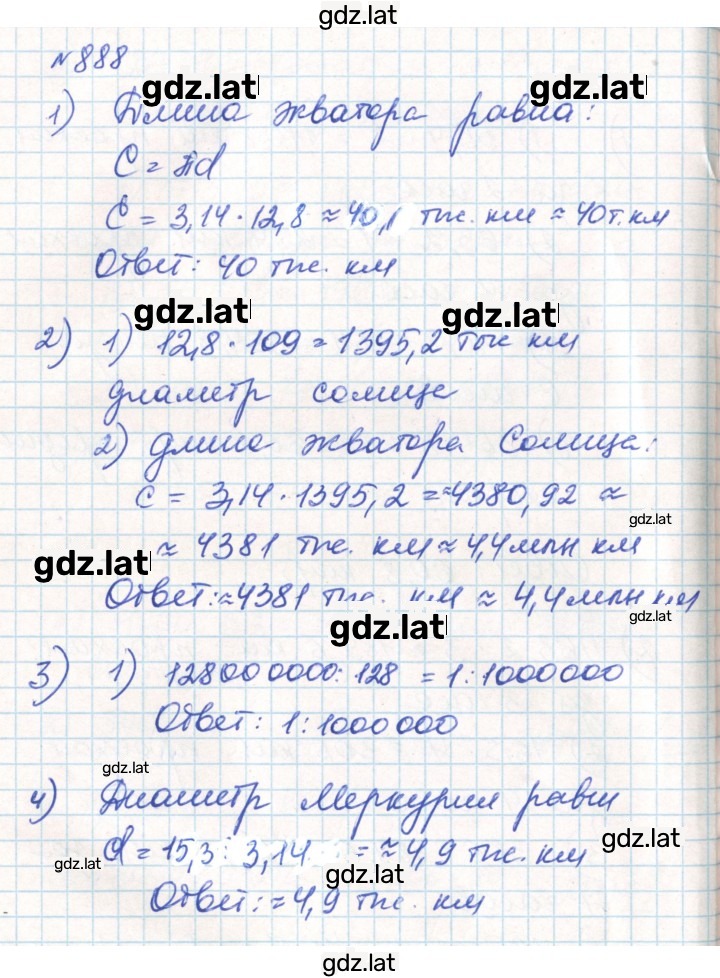 gdz.lat
№888
gdz.lat gdz.lat
1) Длина экватора равна:
C = πd
C = 3,14 · 12,8 ≈ 40,1 тыс. км ≈ 40т.км
Ответ: 40 тыс. км
gdz.lat gdz.lat
2) 1) 12,8 · 109 = 1395,2 тыс км
диаметр солнце
2) длина экватора Солнца:
C = 3,14 · 1395,2 = ≈4380,92 ≈
gdz.lat
≈ 4381 тыс. км ≈ 4,4 млн км
gdz.lat
Ответ: ≈4381 тыс. км ≈ 4,4 млн км
gdz.lat
gdz.lat
3) 1) 128000 0000: 128 = 1 : 1000000
Ответ: 1 : 1000 000
gdz.lat
4) Диаметр Меркурия равн
d = 15,3 : 3,14 = ≈ 4,9 тыс. км
gdz.lat
gdz.lat
gdz.lat
Ответ: ≈ 4,9 тыс. км
gdz.lat